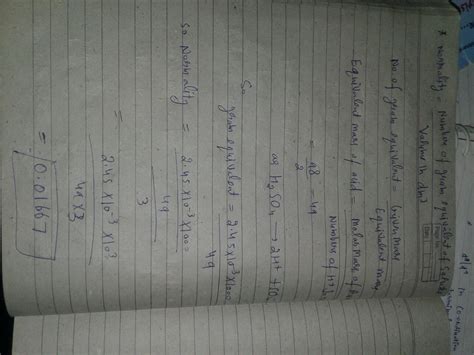 in
* Normality = Number of gram equivalent of
Volume in dm³
No of gram equivalent = Given mass
Equivalent mass
Equivalent mass of acid = molar mass of
Number of H+
= 98
2
= 49
as H₂SO₄ → 2H+ +
So
gram equivalent = 2.45 x10³ x1000
49
So Normality = 2.45 x10³ x1000
49
3
= 2.45 x10³ x10³
49 x 3
= 0.01667